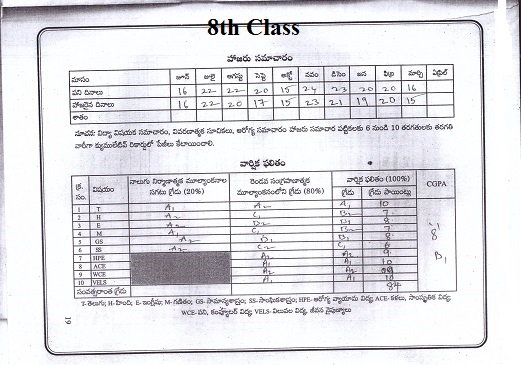 8th Class
హాజరు సమాచారం
మాసం జూన్ జులై ఆగస్టు సెప్టె అక్టో నవం డిసెం జన ఫిబ్ర మార్చి ఏప్రిల్
పని దినాలు 16 22 22 20 15 24 23 20 20 16
హాజరైన దినాలు 16 22 20 17 15 23 21 19 20 15
శాతం
సూచన: విద్యా విషయక సమాచారం, వివరణాత్మక సూచికలు, ఆరోగ్య సమాచారం హాజరు సమాచార పట్టికలకు 6 నుండి 10 తరగతులకు తరగతి
వారీగా క్యుములేటివ్ రికార్డులో పేజీలు కేటాయించాలి.
వార్షిక ఫలితం
క్ర. సం. విషయం నాలుగు నిర్మాణాత్మక మూల్యాంకనాల సగటు గ్రేడు (20%) రెండవ సంగ్రహణాత్మక మూల్యాంకనంలోని గ్రేడు (80%) వార్షిక ఫలితం (100%) CGPA
గ్రేడు గ్రేడు పాయింట్లు
1 T A1 A2 A1 10
2 H A2 C1 B2 7
3 E A2 B2 B1 8
4 M A1 C1 B2 7
5 GS A2 B1 B1 8
6 SS A2 C2 C1 6
7 HPE A2 A2 9
8 ACE A1 A1 10
9 WCE A2 A2
10 VELS A1 A1 10
సంవత్సరాంత గ్రేడు 84
8
B1
T-తెలుగు; H-హింది; E- ఇంగ్లీషు; M-గణితం; GS-సామాన్యశాస్త్రం; SS- సాంఘికశాస్త్రం; HPE-ఆరోగ్య వ్యాయామ విద్య ACE-కళలు, సాంస్కృతిక విద్య
WCE-పని, కంప్యూటర్ విద్య VELS-విలువల విద్య, జీవన నైపుణ్యాలు
19